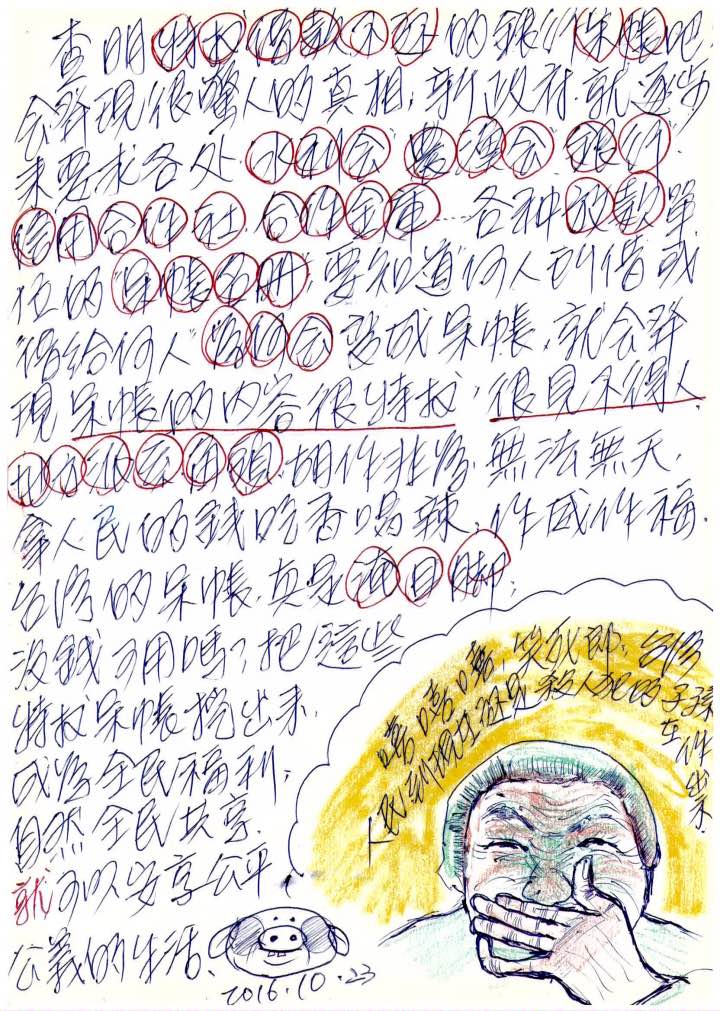 查明特权借款不还的銀行呆帳吧,
会發現很嚇人的真相,新政府就逐步
来要求各处"水利会""農漁会"銀行
信用合作社.合作金庫……各种放款單
位的"呆帳名冊",要知道"何人"到借或
"借給何人""為何会"變成呆帳,就会發
現呆帳的内容很特权,很見不得人,
地方派系角頭.胡作非為.無法無天,
拿人民的錢吃香喝辣、作威作福.
台湾的呆帳.真是滿目
沒錢可用嗎?把這些
特权呆帳挖出来,
成為全民福利,
自然全民共享.
就可以安享公平
公義的生活、
嘻嘻嘻,笑死郎,台湾
人民到現在还是殺人犯的子孫
在作祟.
2016.10.23